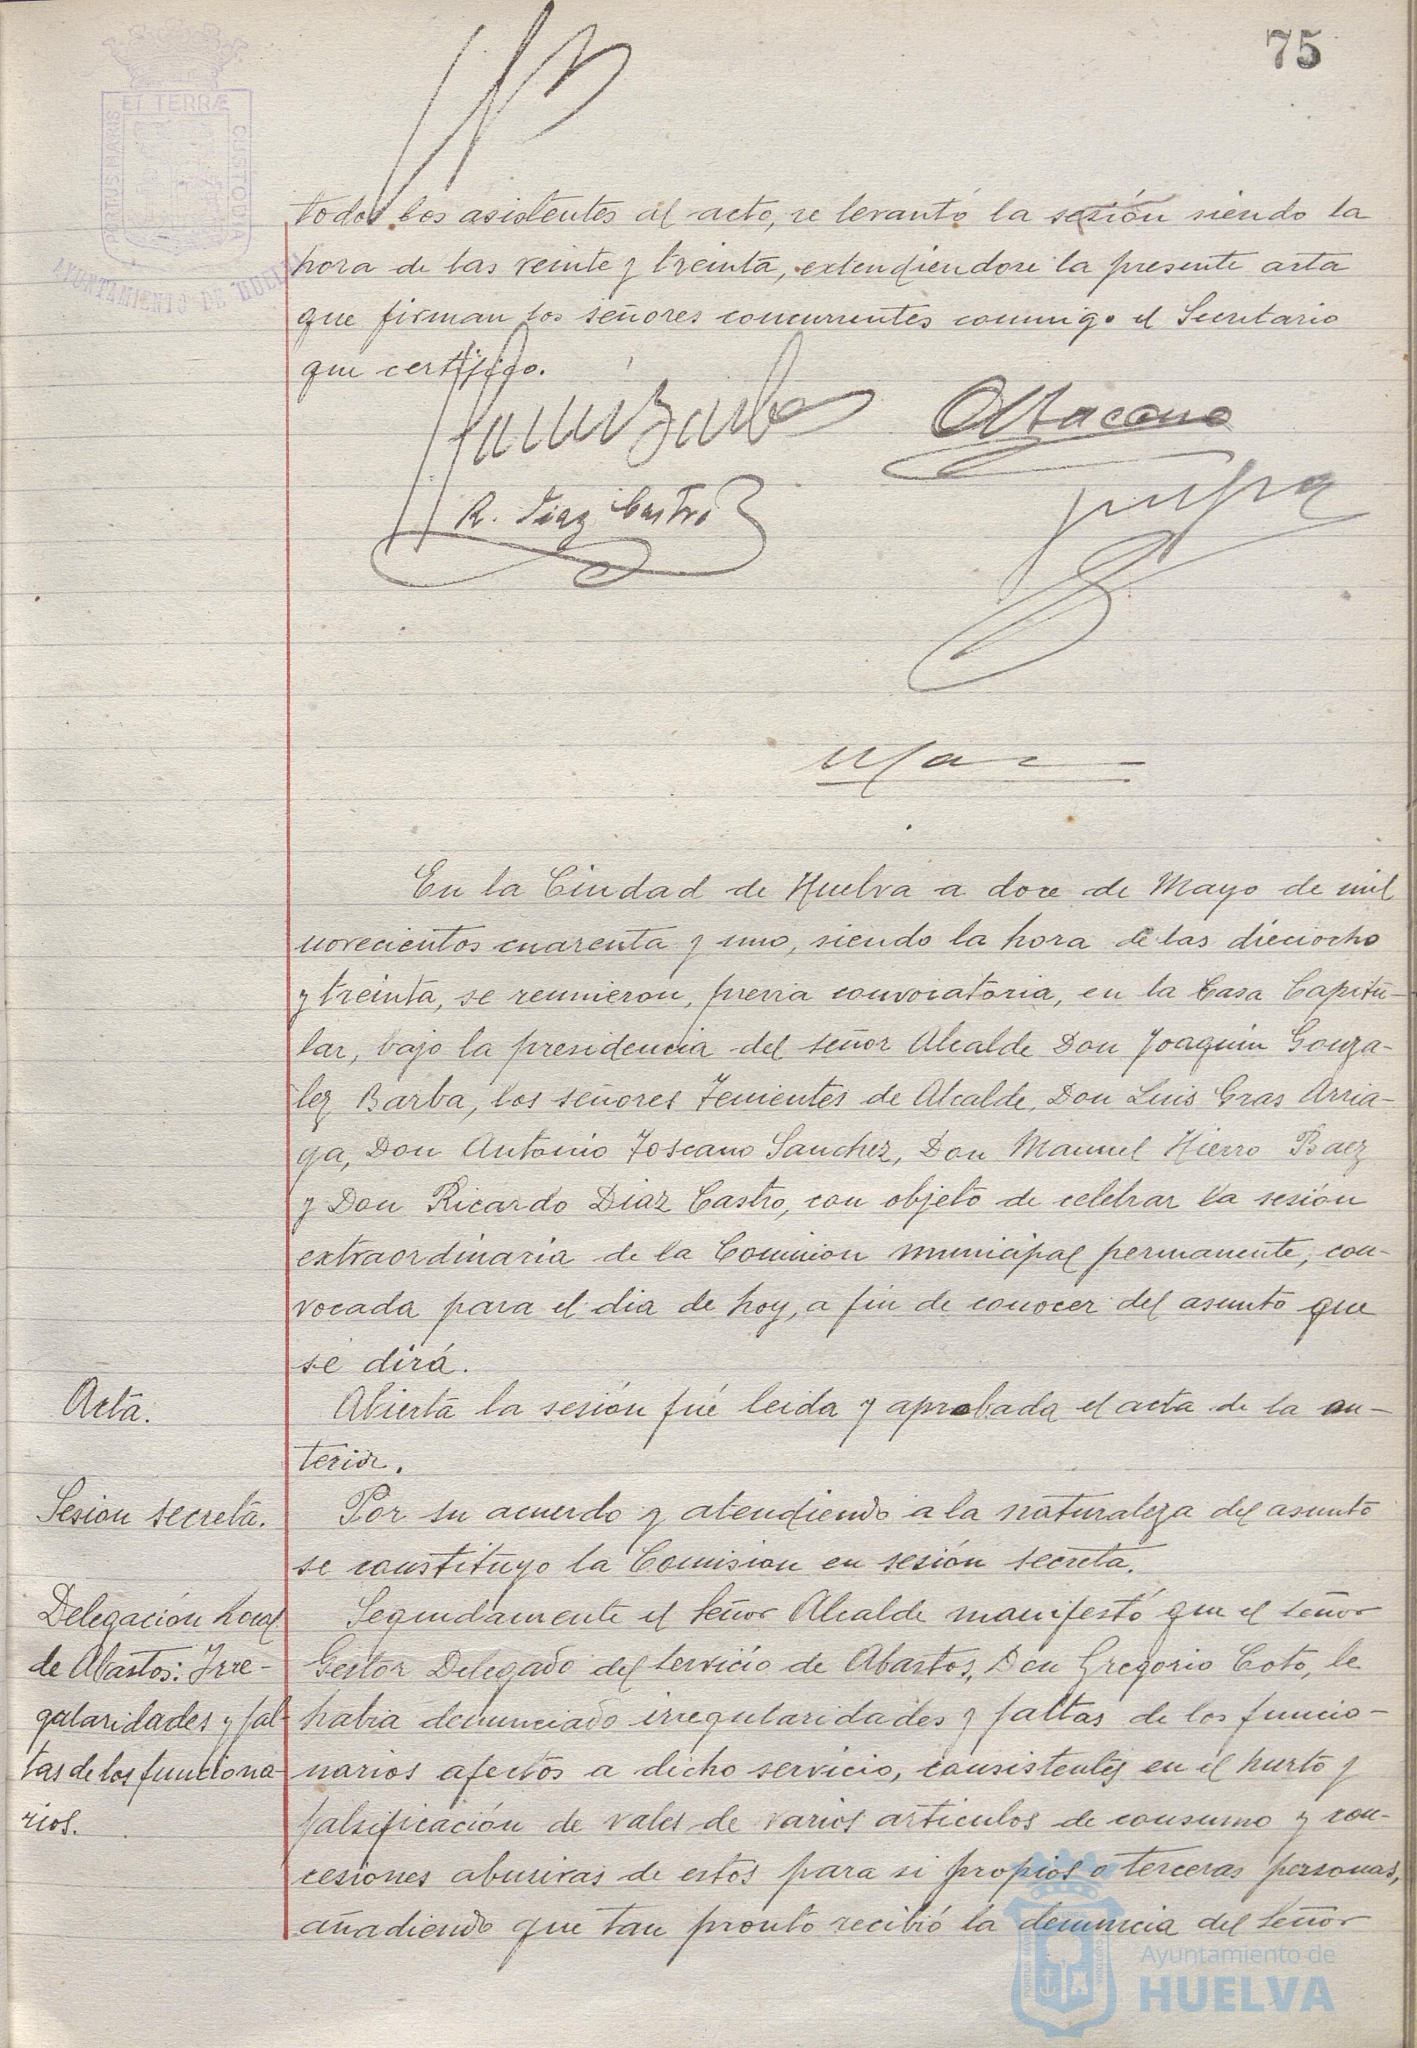 75
ET TERRÆ
PORTUS MARIS
CUSTODIA
AYUNTAMIENTO DE HUELVA
todos los asistentes al acto, se levantó la sesión siendo la
hora de las veinte y treinta, extendiendose la presente acta
que firman los señores concurrentes conmigo el Secretario
que certifico.
R. Diaz Castro
En la Ciudad de Huelva a doce de Mayo de mil
novecientos cuarenta y uno, siendo la hora de las dieciocho
y treinta, se reunieron, previa convocatoria, en la Casa Capitu-
lar, bajo la presidencia del señor Alcalde Don Joaquin Gonza-
lez Barba, los señores Tenientes de Alcalde, Don Luis Gras Arria-
ga, Don Antonio Toscano Sanchez, Don Manuel Hierro Baez
y Don Ricardo Diaz Castro, con objeto de celebrar la sesión
extraordinaria de la Comision municipal permanente, con-
vocada para el dia de hoy, a fin de conocer del asunto que
se dirá.
Acta.
Abierta la sesión fué leida y aprobada el acta de la an-
terior.
Sesion secreta.
Por su acuerdo y atendiendo a la naturaleza del asunto
se constituyo la Comision en sesión secreta.
Delegación Local
de Abastos: Irre-
gularidades y fal-
tas de los funciona-
rios.
Segundamente el Señor Alcalde manifestó que el señor
Gestor Delegado del servicio de Abastos, Don Gregorio Coto, le
habia denunciado irregularidades y faltas de los funcio-
narios afectos a dicho servicio, consistentes en el hurto y
falsificación de vales de varios articulos de consumo y con-
cesiones abusivas de estos para si propios o terceras personas,
añadiendo que tan pronto recibió la denuncia del Señor
Ayuntamiento de
HUELVA